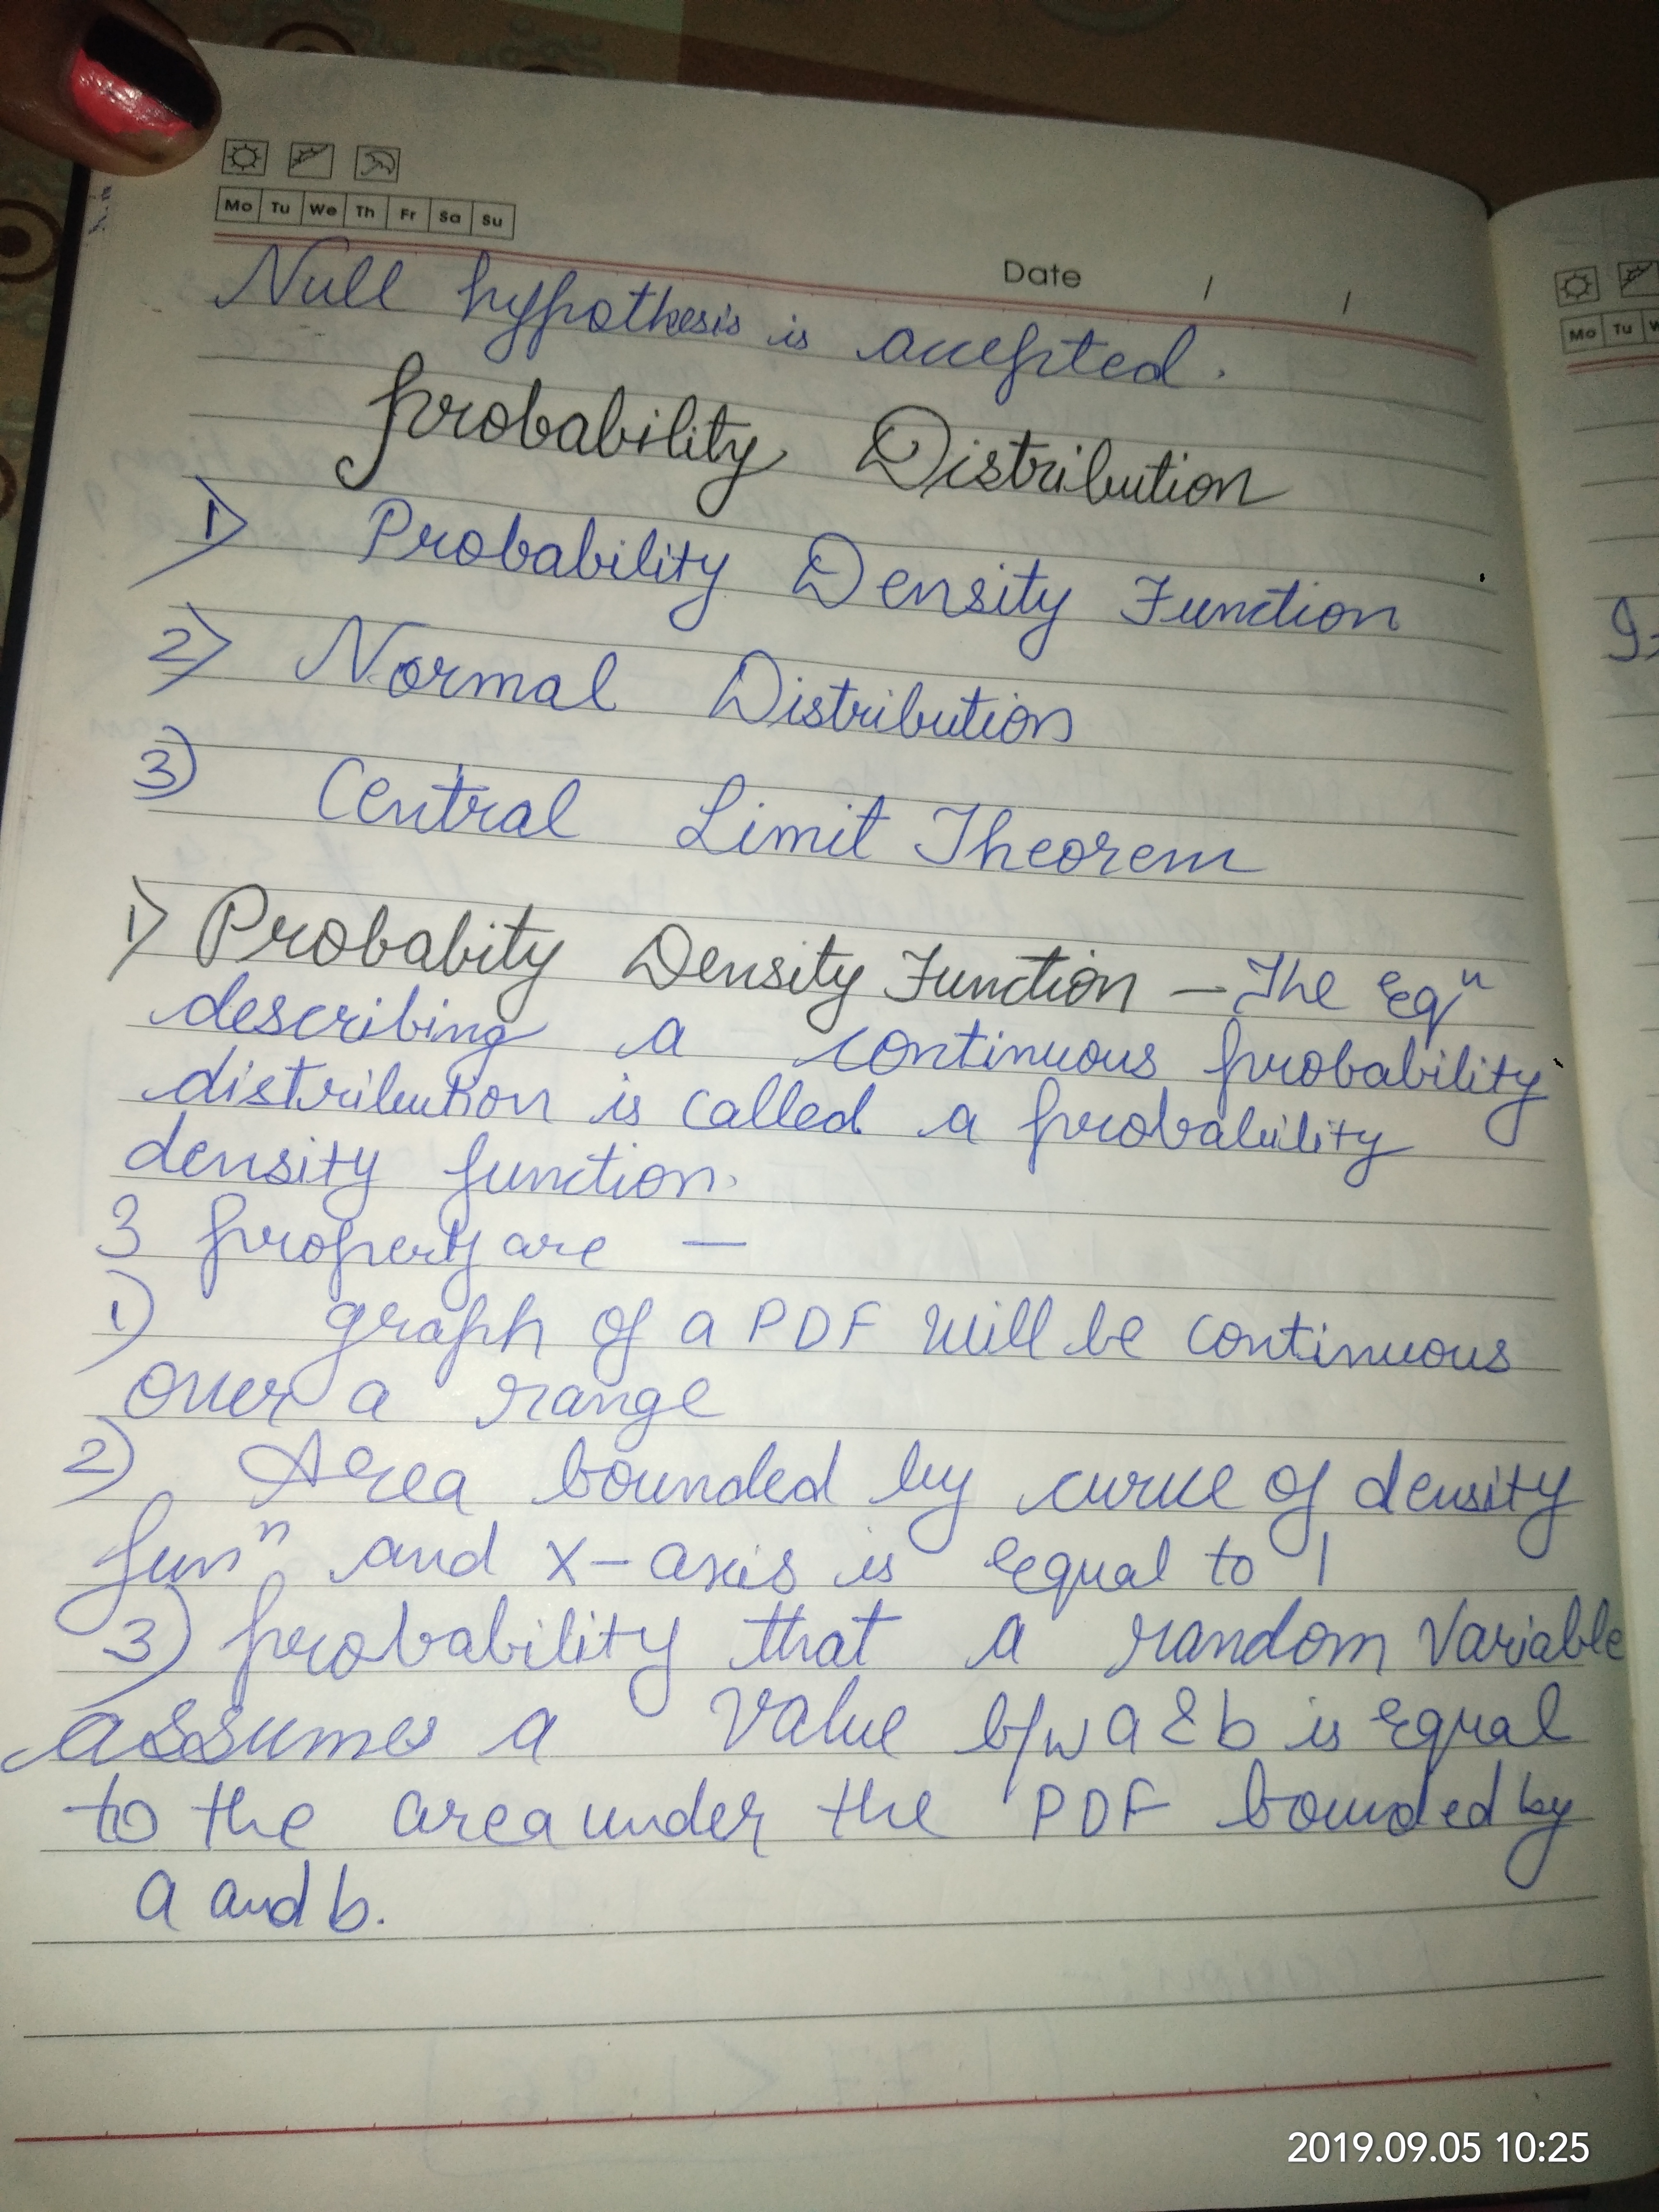 Mo Tu We Th Fr Sa Su
Date / /
Null hypothesis is accepted.
Probability Distribution
1) Probability Density Function
2) Normal Distribution
3) Central Limit Theorem
1) Probabity Density Function - The Eqⁿ
describing a continuous probability
distribution is called a probability
density function.
3 property are -
1) graph of a PDF will be continuous
over a range
2) Area bounded by curve of density
funⁿ and x-axis is equal to 1
3) probability that a random variable
assumes a value b/w a & b is equal
to the area under the PDF bounded by
a and b.
Mo Tu
2019.09.05 10:25